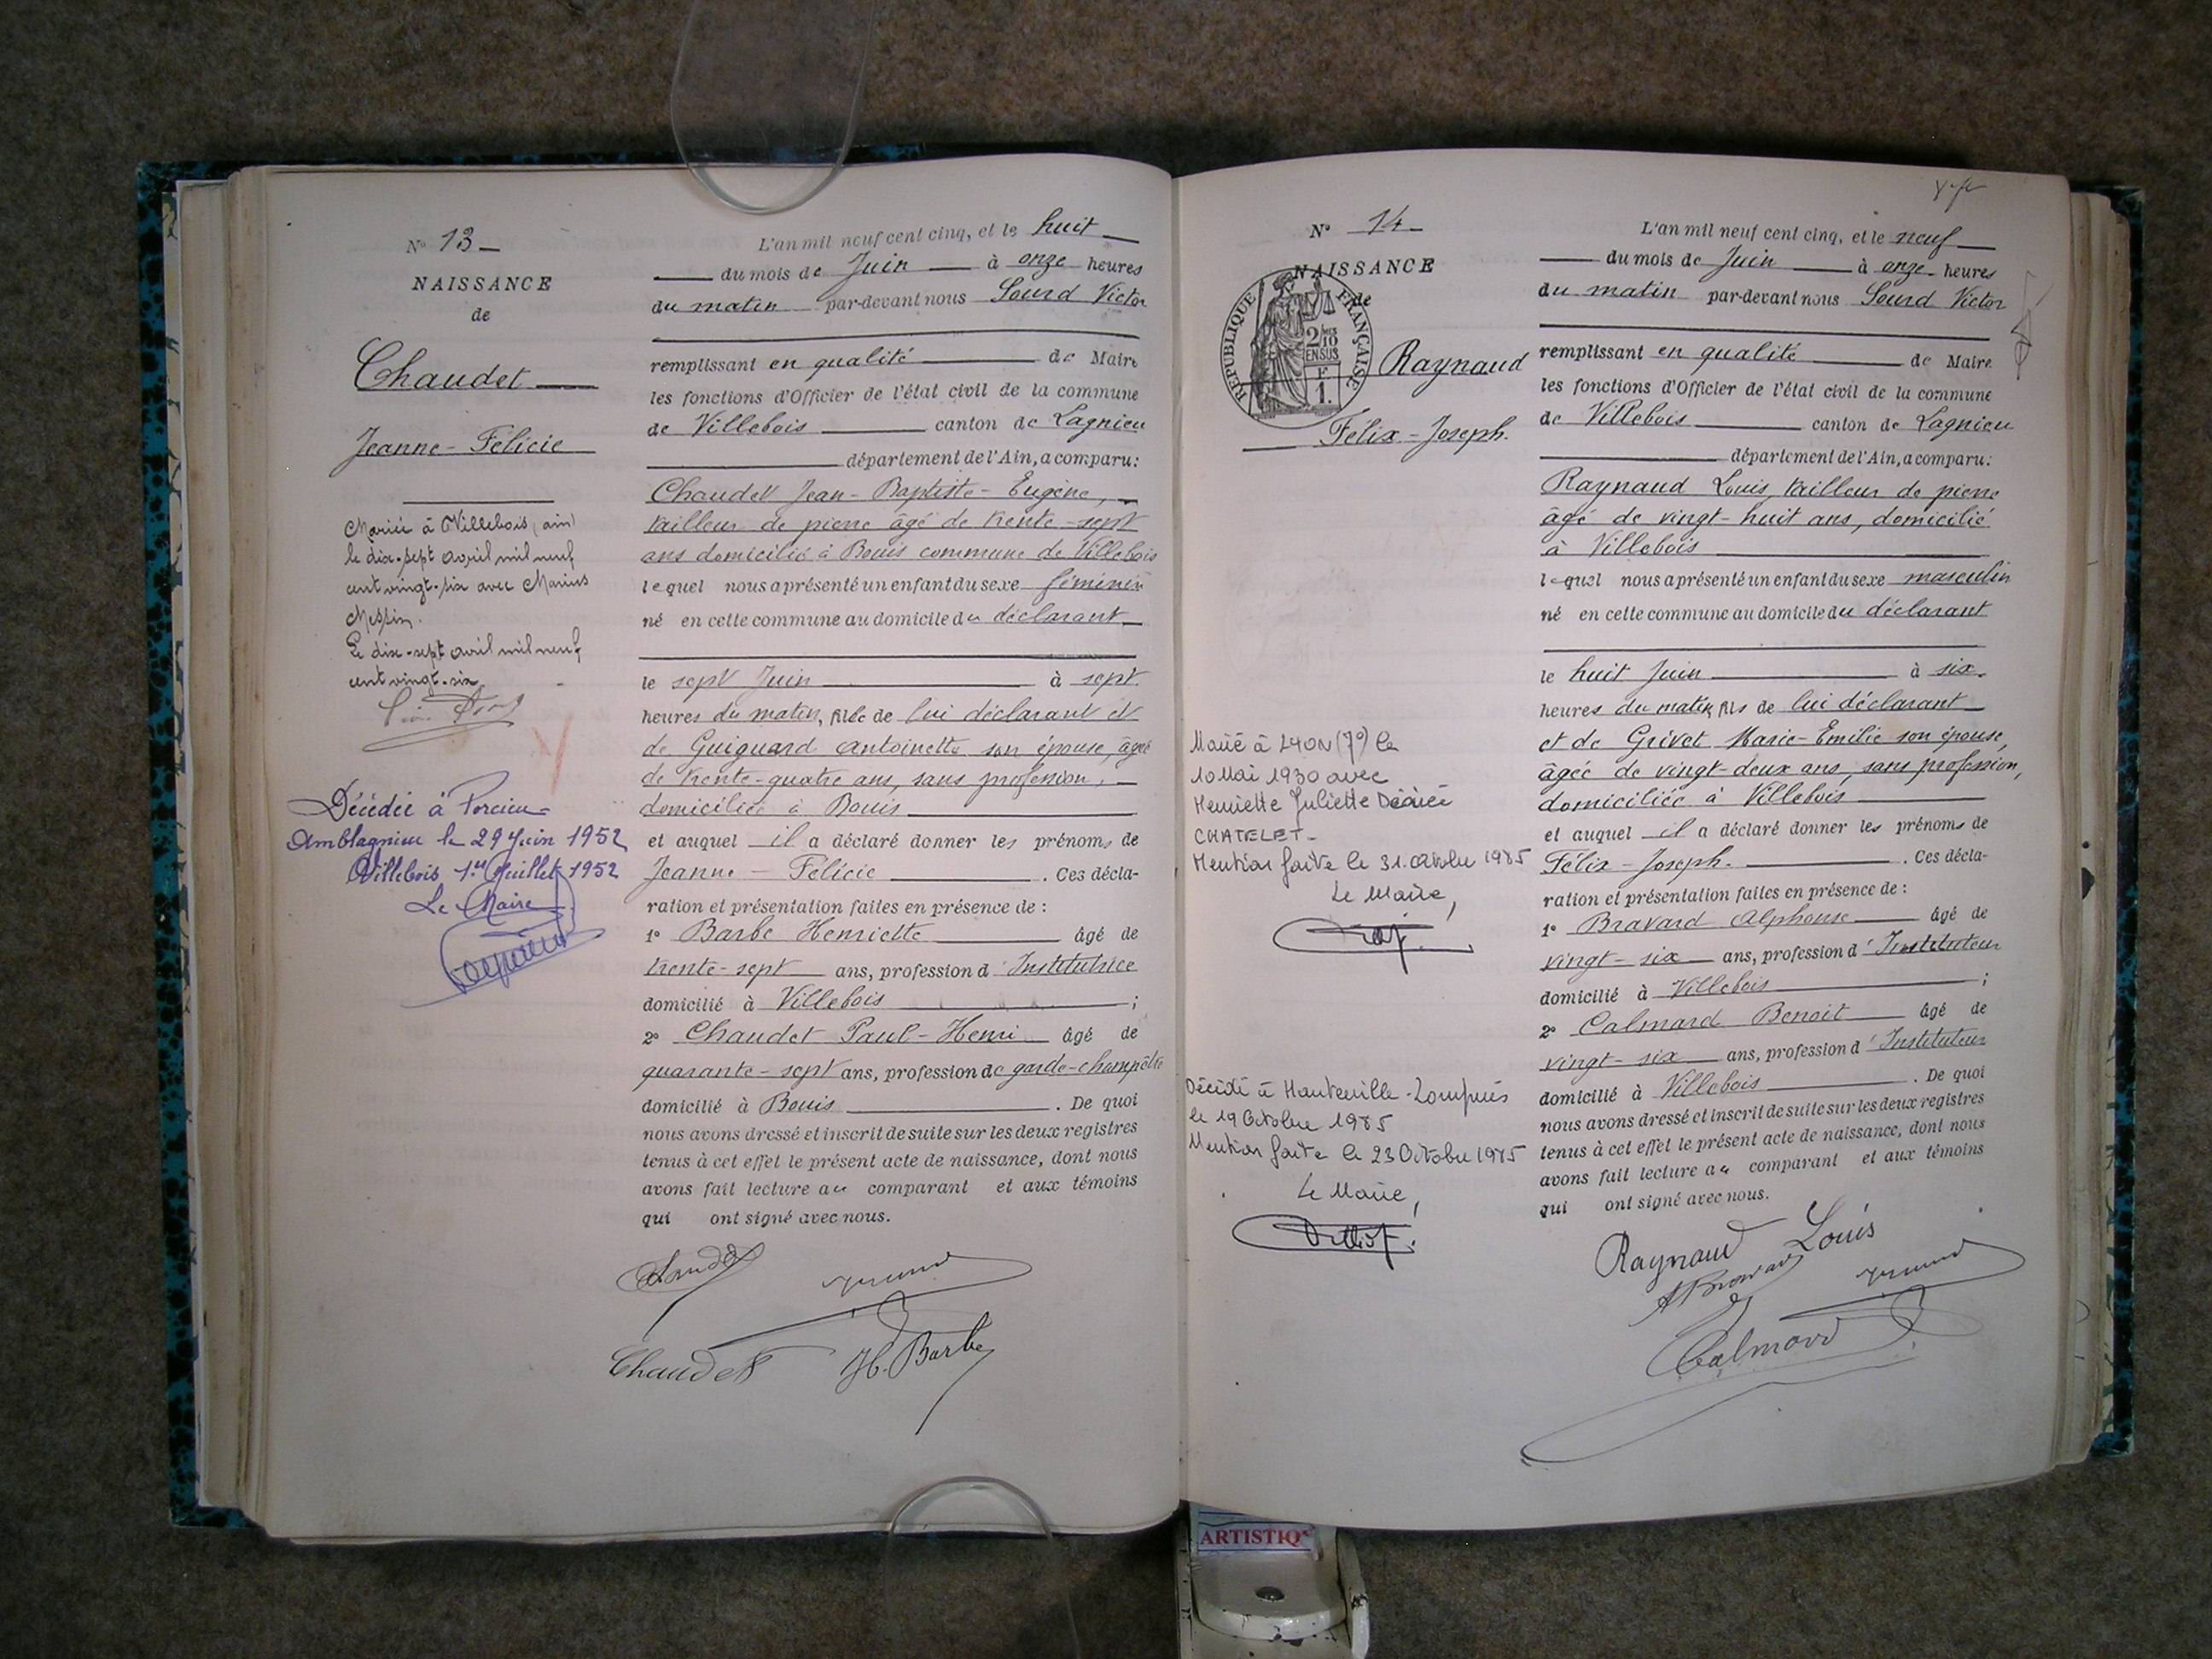 N° 13
NAISSANCE
de
Chaudet
Jeanne-Félicie
Mariée à Villebois (ain)
le dix-sept avril mil neuf
cent vingt-six avec Marius
Messin.
Le dix-sept avril mil neuf
cent vingt-six
Décédée à Porcieu-
Amblagnieu le 29 Juin 1952
Villebois 1er Juillet 1952
Le Maire
L'an mil neuf cent cinq, et le huit
du mois de Juin à onze heures
du matin par-devant nous Sourd Victor
remplissant en qualité de Maire
les fonctions d'Officier de l'état civil de la commune
de Villebois canton de Lagnieu
département de l'Ain, a comparu:
Chaudet Jean-Baptiste-Eugène,
tailleur de pierre âgé de trente-sept
ans domicilié à Bouis commune de Villebois
lequel nous a présenté un enfant du sexe féminin
né en cette commune au domicile du déclarant
le sept Juin à sept
heures du matin, fille de lui déclarant et
de Guiguard Antoinette son épouse, âgée
de trente-quatre ans, sans profession,
domiciliée à Bouis
et auquel il a déclaré donner les prénoms de
Jeanne-Félicie. Ces décla-
ration et présentation faites en présence de :
1° Barbe Henriette âgé de
trente-sept ans, profession d'Institutrice
domicilié à Villebois ;
2° Chaudet Paul-Henri âgé de
quarante-sept ans, profession de garde-champêtre
domicilié à Bouis. De quoi
nous avons dressé et inscrit de suite sur les deux registres
tenus à cet effet le présent acte de naissance, dont nous
avons fait lecture au comparant et aux témoins
qui ont signé avec nous.
Chaudet H. Barbe
N° 14
NAISSANCE
de
REPUBLIQUE FRANÇAISE
2/10
EN SUS
F.
1.
Raynaud
Félix-Joseph.
Marié à LYON (7e) le
10 Mai 1930 avec
Henriette Juliette Désirée
CHATELET-
Mention faite le 31 Octobre 1985
Le Maire,
Décédé à Hauteville-Lompnes
le 19 Octobre 1985
Mention faite le 23 Octobre 1985
Le Maire,
L'an mil neuf cent cinq, et le neuf
du mois de Juin à onze heures
du matin par-devant nous Sourd Victor
remplissant en qualité de Maire
les fonctions d'Officier de l'état civil de la commune
de Villebois canton de Lagnieu
département de l'Ain, a comparu:
Raynaud Louis, tailleur de pierre
âgé de vingt-huit ans, domicilié
à Villebois
lequel nous a présenté un enfant du sexe masculin
né en cette commune au domicile du déclarant
le huit Juin à six
heures du matin, fils de lui déclarant
et de Grivet Marie-Emilie son épouse,
âgée de vingt-deux ans, sans profession,
domiciliée à Villebois
et auquel il a déclaré donner les prénoms de
Félix-Joseph. Ces décla-
ration et présentation faites en présence de :
1° Bravard Alphonse âgé de
vingt-six ans, profession d'Instituteur
domicilié à Villebois ;
2° Calmard Benoit âgé de
vingt-six ans, profession d'Instituteur
domicilié à Villebois. De quoi
nous avons dressé et inscrit de suite sur les deux registres
tenus à cet effet le présent acte de naissance, dont nous
avons fait lecture au comparant et aux témoins
qui ont signé avec nous.
Raynaud Louis
ABravard
Calmard
ARTISTIQ